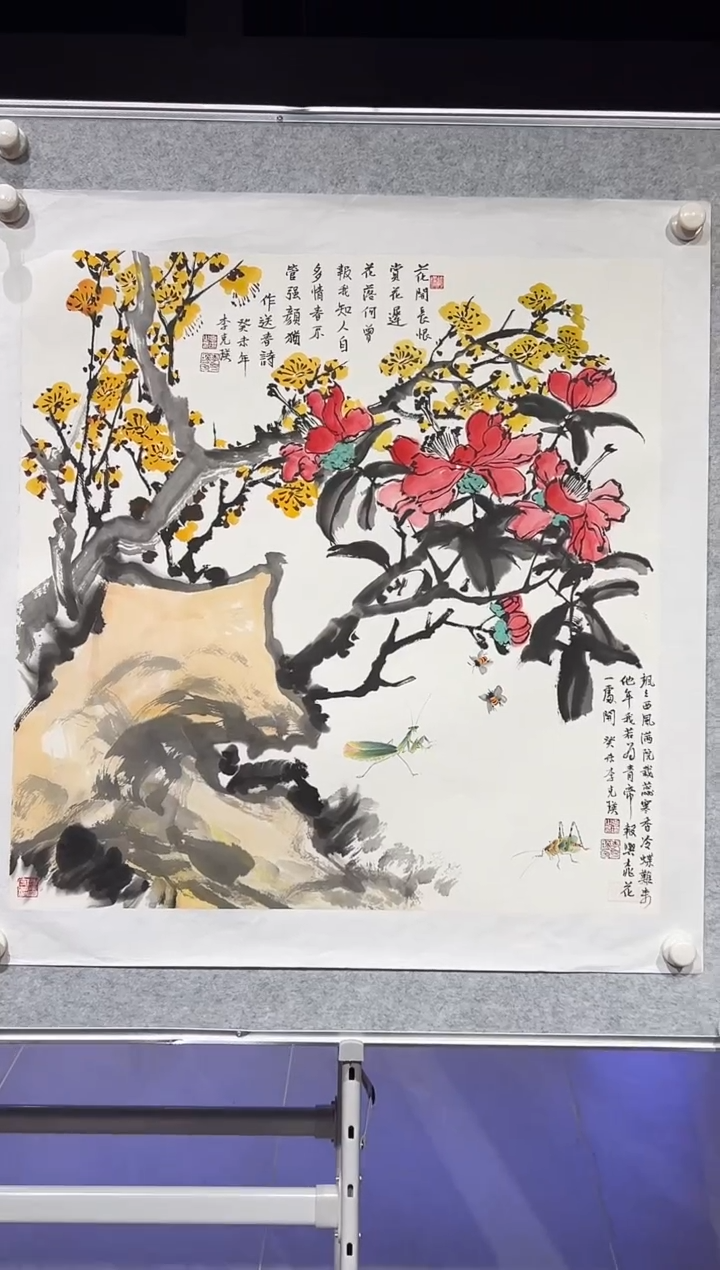 花開長恨
賞花遲
花落何曾
報我知人自
多情春不
管强顏猶
作送春詩
癸未年
李克
颯〻西風滿院栽蕊寒香冷蝶難来
他年我若為青帝 報與桃花
一處開 癸未李克